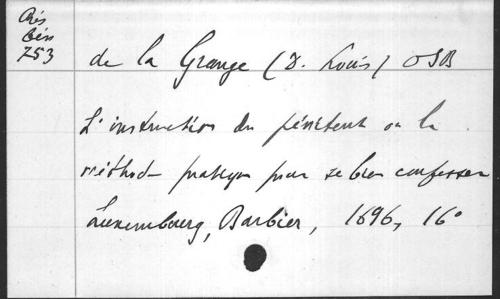 Rés
bén
753
de la Grange (D. Louis) OSB
L'instruction du pénitent ou la
méthode pratique pour se bien confesser
Luxembourg, Barbier, 1696, 16°